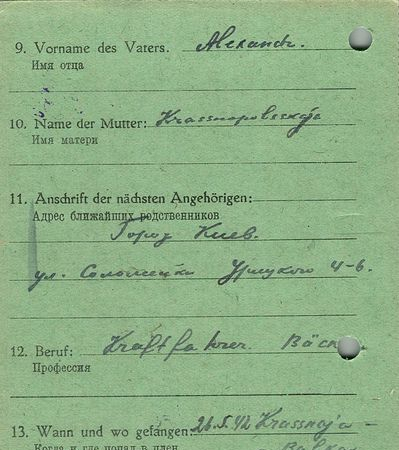 9. Vorname des Vaters. Alexandr.
Имя отца
10. Name der Mutter: Krassnopolsskaja
Имя матери
11. Anschrift der nächsten Angehörigen:
Адрес ближайших родственников
Город Киев.
ул. 4-6.
12. Beruf: Kraftfahrer.
Профессия
13. Wann und wo gefangen: 26.5.42 Krassnaja-
Когда и где попал в плен
Balka